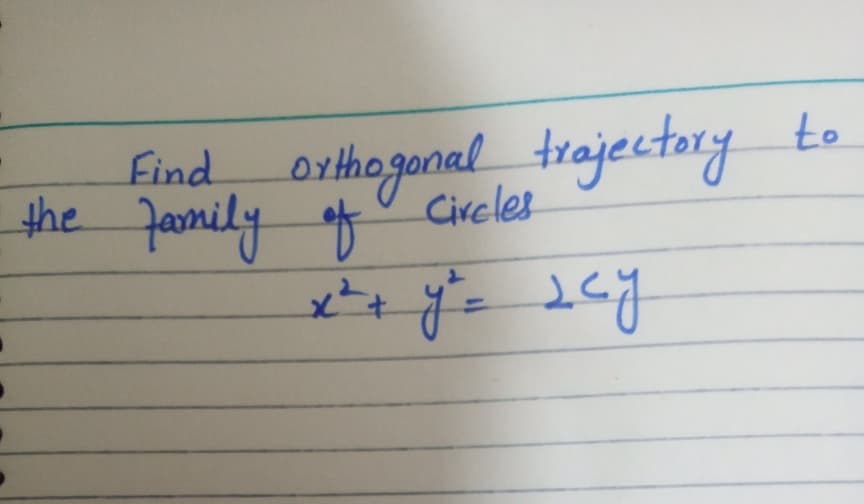 Find orthogonal trajectory to
the family of Circles
x² + y² = 2cy